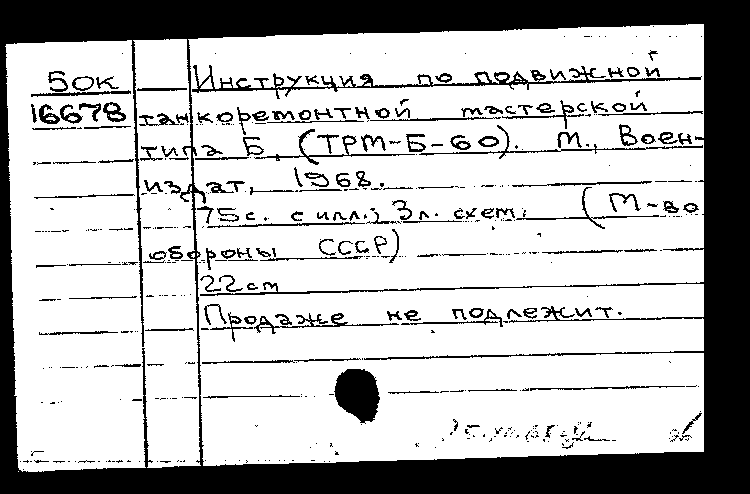 50к Инструкция по подвижной
16678 танкоремонтной мастерской
типа Б, (ТРМ-Б-60). М., Воен-
издат, 1968.
75с. с илл.; 3л. схем. (М-во
обороны СССР)
22см
Продаже не подлежит.